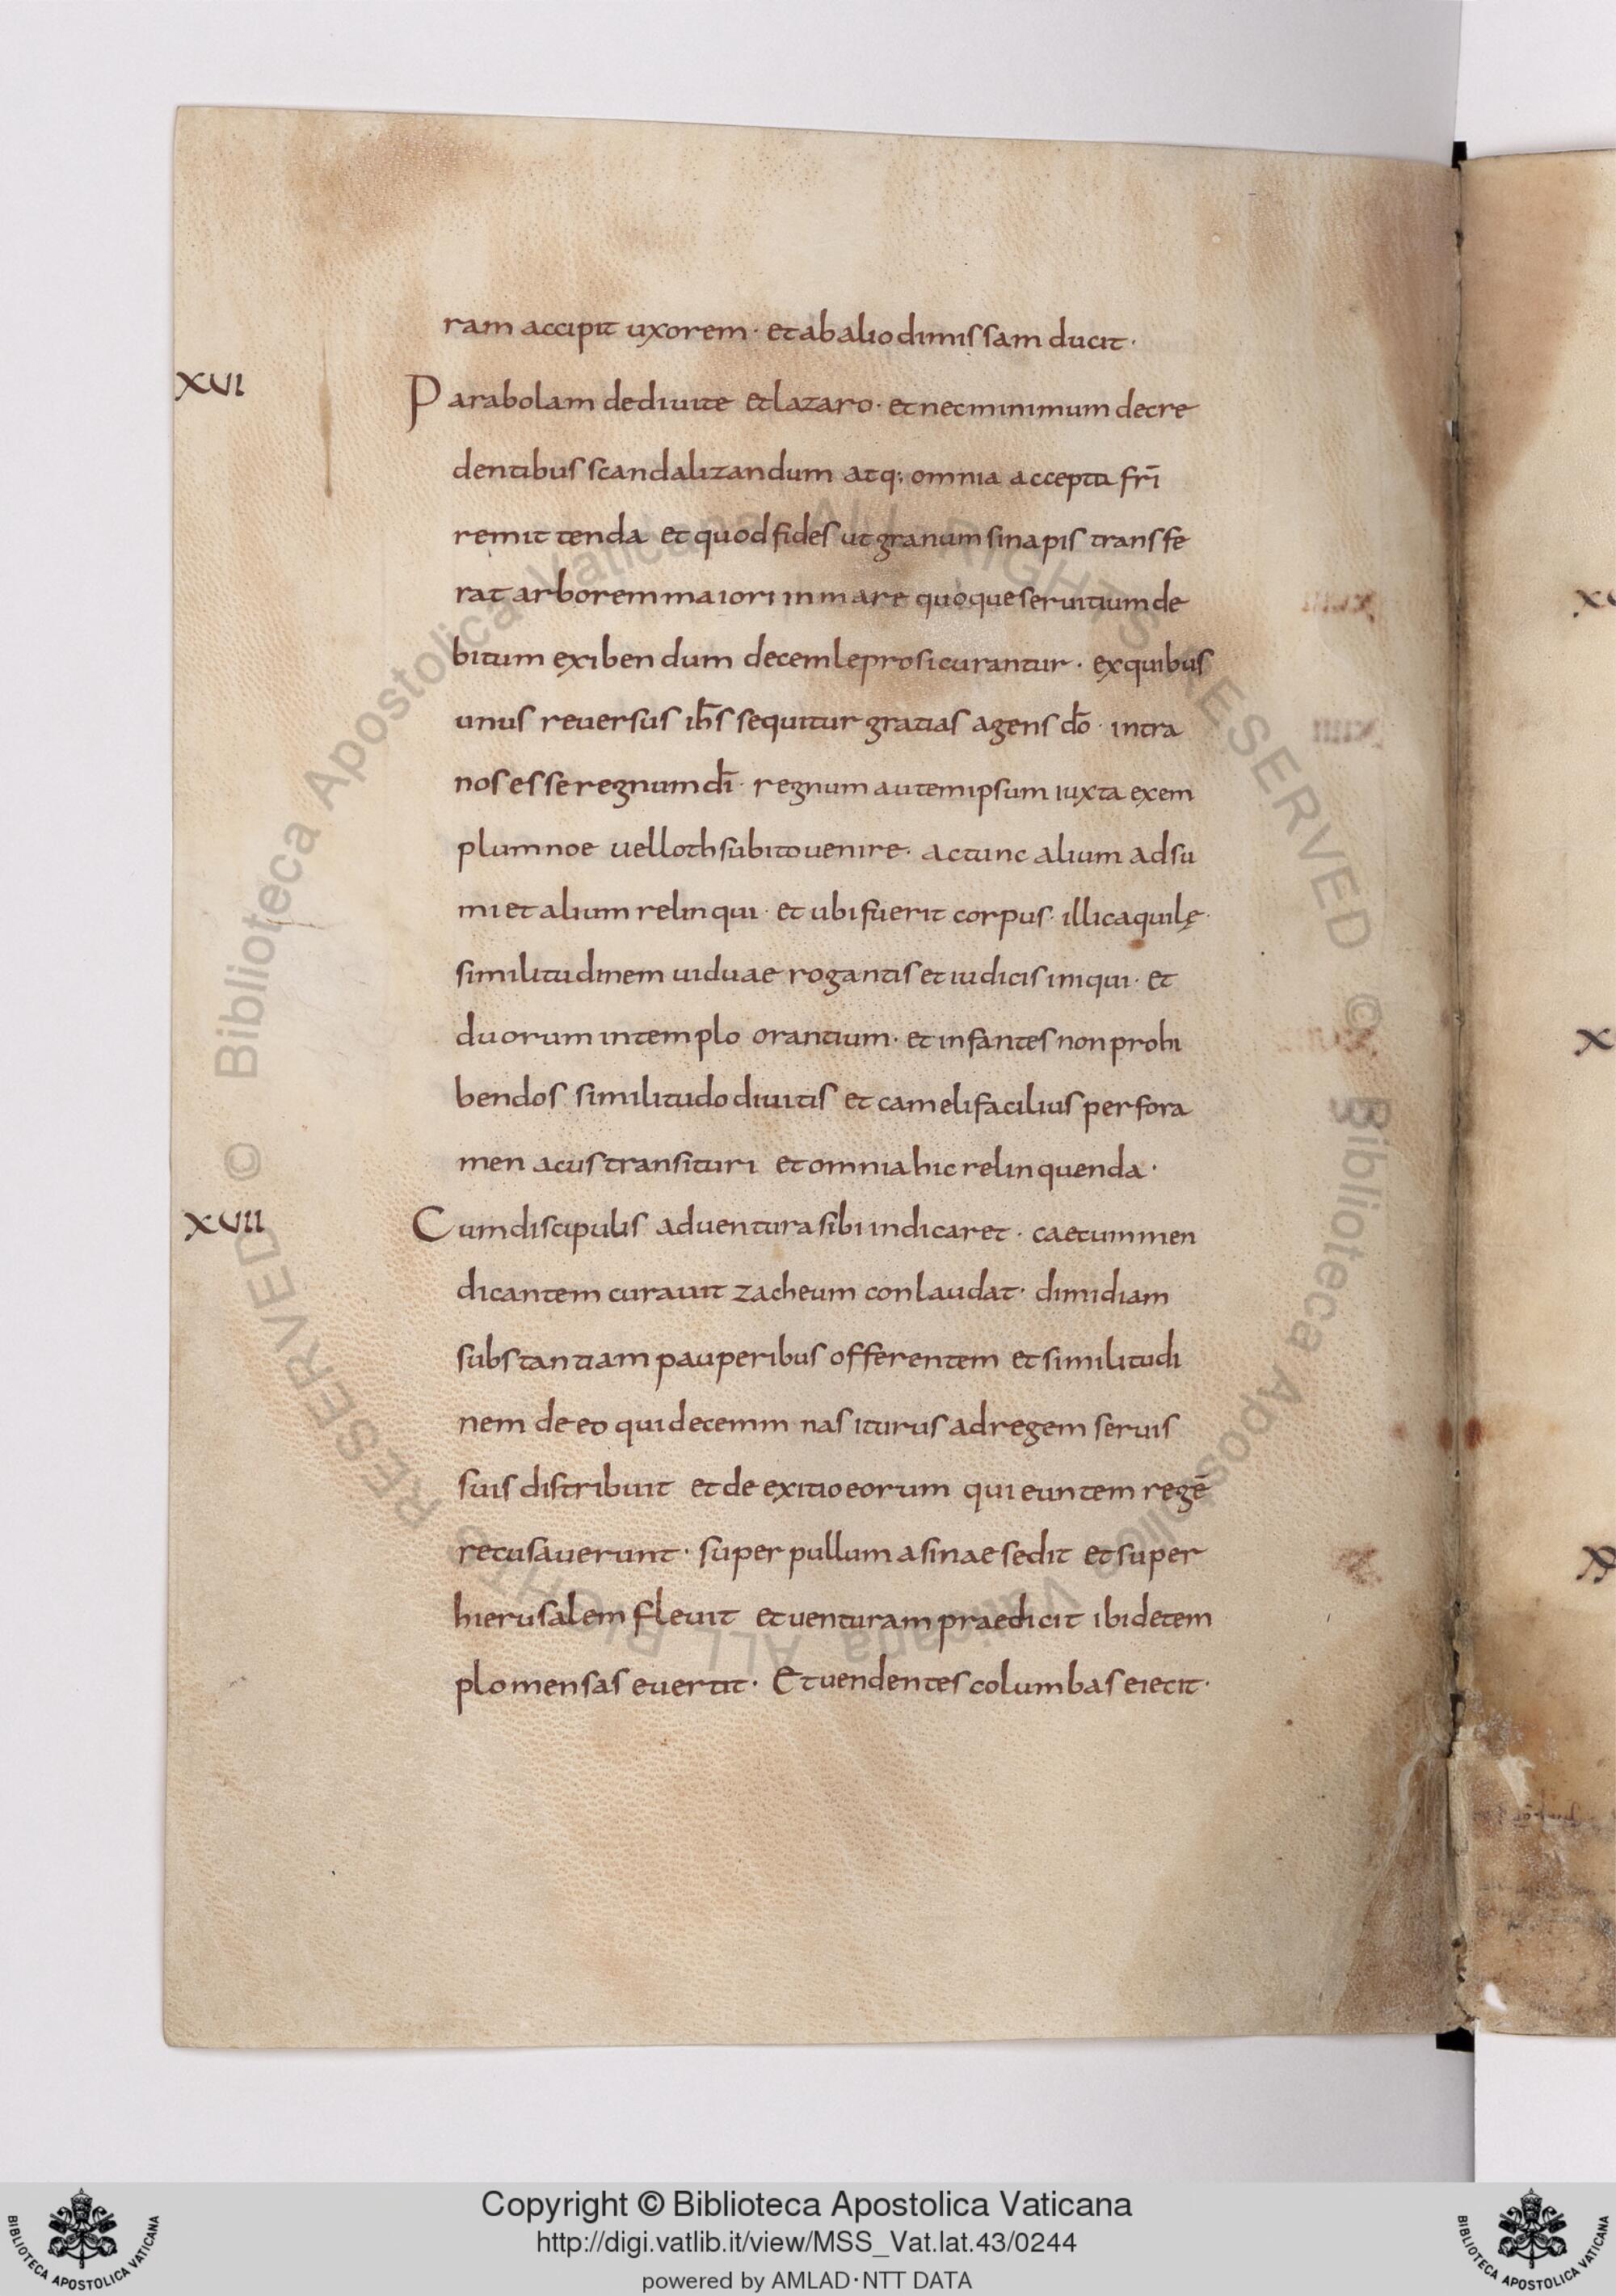 ram accipit uxorem · et ab alio dimissam ducit ·
XVI
Parabolam de diuite et lazaro · et nec minimum decre
dentibus scandalizandum atq; omnia accepta fr̄i
remittenda et quod fides ut granum sinapis transfe
rat arborem maiori in mare quoque seruitium de
bitum exibendum decem leprosi curantur · ex quibus
unus reuersus ih̄s sequitur gratias agens d̄o · intra
nos esse regnum d̄i · regnum autem ipsum iuxta exem
plum noe uel loth subito uenire · ac tunc alium adsu
mi et alium relinqui · et ubi fuerit corpus · illic aquilę ·
similitudinem uiduae rogantis et iudicis iniqui · et
duorum in templo orantium · et infantes non prohi
bendos similitudo diuitis et cameli facilius per fora
men acus transituri et omnia hic relinquenda ·
XVII
Cum discipulis aduentura sibi indicaret · caecum men
dicantem curauit zacheum conlaudat · dimidiam
substantiam pauperibus offerentem et similitudi
nem de eo qui decem mnas iturus ad regem seruis
suis distribuit et de exitio eorum qui euntem regē
recusauerunt · super pullum asinae sedit et super
hierusalem fleuit et uenturam praedicit ibi de tem
plo mensas euertit · Et uendentes columbas eiecit ·
Copyright © Biblioteca Apostolica Vaticana
http://digi.vatlib.it/view/MSS_Vat.lat.43/0244
powered by AMLAD·NTT DATA
BIBLIOTECA APOSTOLICA VATICANA
BIBLIOTECA APOSTOLICA VATICANA